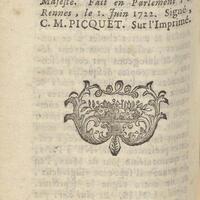 Majesté. Fait en Parlement
Rennes, le 1. Juin 1722. Signé,
C. M. PICQUET. Sur l'Imprimé.